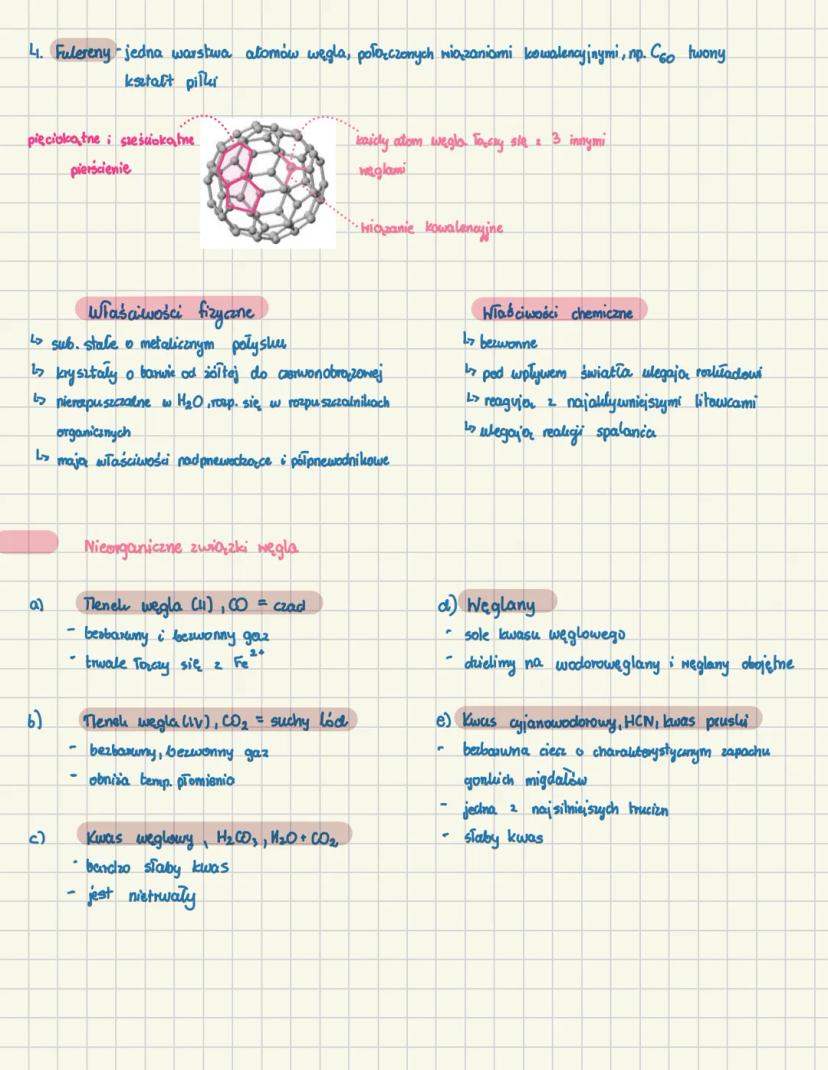 4. Fulereny - jedna warstwa atomów węgla, połączonych wiązaniami kowalencyjnymi, np. C₆₀ tworzy
kształt piłki
pięciokątne i sześciokątne
pierścienie
każdy atom węgla łączy się z 3 innymi
węglami
wiązanie kowalencyjne
Właściwości fizyczne
↳ sub. stałe o metalicznym połysku
↳ kryształy o barwie od żółtej do czerwonobrązowej
↳ nierozpuszczalne w H₂O, rozp. się w rozpuszczalnikach
organicznych
↳ mają właściwości nadprzewodzące i półprzewodnikowe
Właściwości chemiczne
↳ bezwonne
↳ pod wpływem światła ulegają rozkładowi
↳ reagują z najaktywniejszymi litowcami
↳ ulegają reakcji spalania
Nieorganiczne związki węgla
a) Tlenek węgla (II), CO = czad
- bezbarwny i bezwonny gaz
- trwale łączy się z Fe²⁺
b) Tlenek węgla (IV), CO₂ = suchy lód
- bezbarwny, bezwonny gaz
- obniża temp. płomienia
c) Kwas węglowy, H₂CO₃, H₂O + CO₂
- bardzo słaby kwas
- jest nietrwały
d) Węglany
- sole kwasu węglowego
- dzielimy na wodorowęglany i węglany obojętne
e) Kwas cyjanowodorowy, HCN, kwas pruski
- bezbarwna ciecz o charakterystycznym zapachu
gorzkich migdałów
- jedna z najsilniejszych trucizn
- słaby kwas